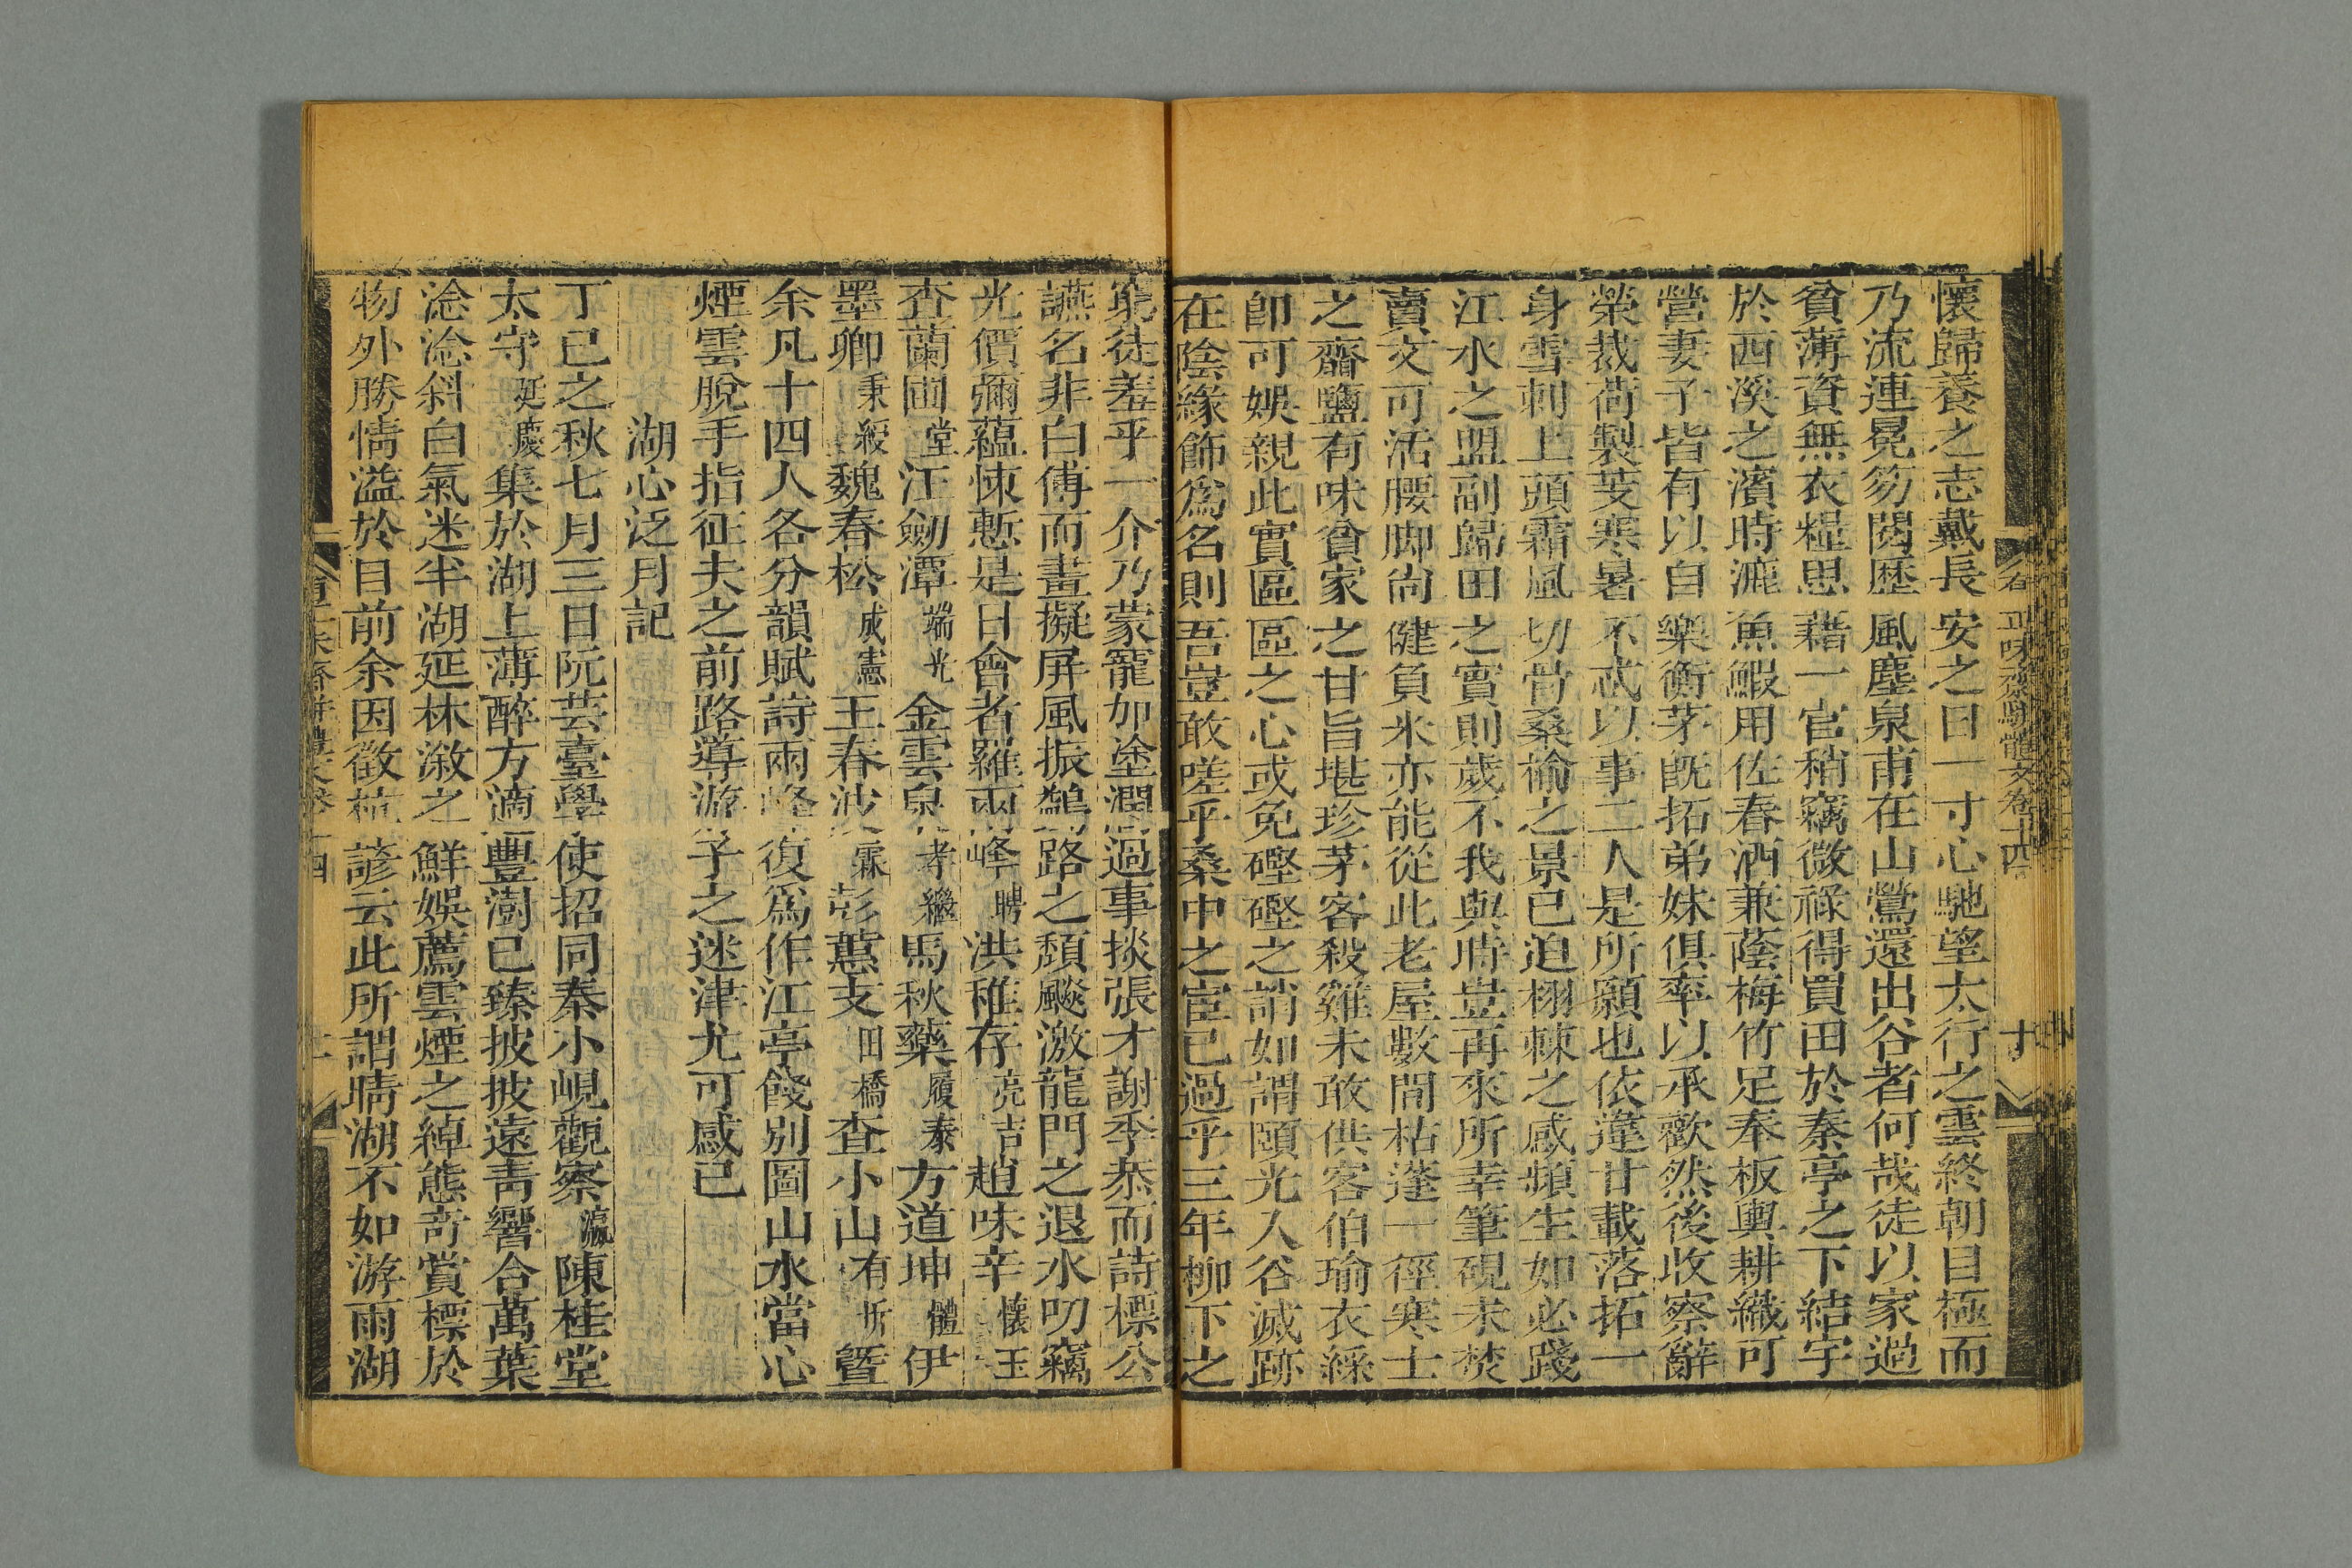 有正味齋駢體文卷十四 十
懷歸養之志戴長安之日一寸心馳望太行之雲終朝目極而
乃流連冕笏閱歷風塵泉甫在山鶯還出谷者何哉徒以家過
貧薄資無衣糧思藉一官稍竊微祿得買田於秦亭之下結宇
於西溪之濱時漉魚鰕用佐春酒兼蔭梅竹足奉板輿耕織可
營妻子皆有以自樂衡茅旣拓弟妹俱率以承歡然後收察辭
榮裁荷製芰寒暑不忒以事二人是所願也依違廿載落拓一
身雪刺上頭霜風切骨桑榆之景已迫栩棘之感頻生如必踐
江水之盟副歸田之實則歲不我與時豈再來所幸筆硯未焚
賣文可活腰脚尙健負米亦能從此老屋數間枯蓬一徑寒士
之齏鹽有味貧家之甘旨堪珍茅客殺雞未敢供客伯瑜衣綵
卽可娛親此實區區之心或免硜硜之誚如謂頤光入谷滅跡
在陰緣飾爲名則吾豈敢嗟乎桑中之宦已過乎三年柳下之
窮徒羞乎一介乃蒙寵加塗潤過事掞張才謝季恭而詩標公
讌名非白傅而畫擬屏風振鷀路之頹飈激龍門之退水叨竊
光價彌蘊悚慙是日會者羅兩峰聘洪稚存亮吉趙味辛懷玉
查蘭圃堂汪劒潭端光金雲泉孝繼馬秋藥履泰方道坤體伊
墨卿秉綬魏春松成憲王春波霖彭蕙支田橋查小山有圻曁
余凡十四人各分韻賦詩兩峰復爲作江亭餞别圖山水當心
煙雲脫手指征夫之前路導游子之迷津尤可感已
湖心泛月記
丁巳之秋七月三日阮芸臺學使招同秦小峴觀察瀛陳桂堂
太守廷慶集於湖上薄醉方滴豐澍已臻披披遠靑響合萬葉
淰淰斜白氣迷半湖延袜溆之鮮娛薦雲煙之綽態奇賞標於
物外勝情溢於目前余因徵杭諺云此所謂晴湖不如游雨湖